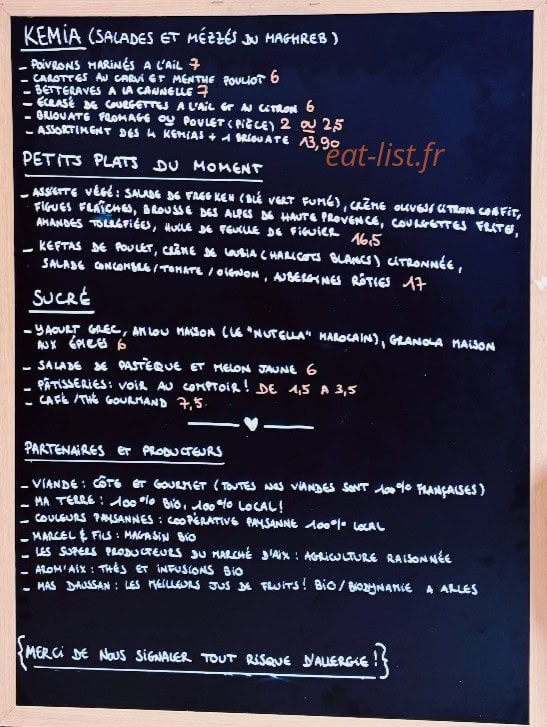 KEMIA (SALADES ET MÉZZÉS DU MAGHREB)
- POIVRONS MARINÉS A L'AIL 7
- CAROTTES AU CARVI ET MENTHE POULIOT 6
- BETTERAVES A LA CANNELLE 7
- ÉCRASÉ DE COURGETTES A L'AIL ET AU CITRON 6
- BRIOUATE FROMAGE OU POULET (PIÈCE) 2 OU 2,5
- ASSORTIMENT DES 4 KEMIAS + 1 BRIOUATE 13,90
eat-list.fr
PETITS PLATS DU MOMENT
- ASSIETTE VÉGÉ : SALADE DE FREEKEH (BLÉ VERT FUMÉ), CRÈME OLIVES/CITRON CONFIT,
FIGUES FRAÎCHES, BROUSSE DES ALPES DE HAUTE PROVENCE, COURGETTES FRITES,
AMANDES TORRÉFIÉES, HUILE DE FEUILLE DE FIGUIER 16,5
- KEFTAS DE POULET, CRÈME DE LOUBIA (HARICOTS BLANCS) CITRONNÉE,
SALADE CONCOMBRE/TOMATE/OIGNON, AUBERGINES RÔTIES 17
SUCRÉ
- YAOURT GREC, AMLOU MAISON (LE "NUTELLA" MAROCAIN), GRANOLA MAISON
AUX ÉPICES 6
- SALADE DE PASTÈQUE ET MELON JAUNE 6
- PÂTISSERIES : VOIR AU COMPTOIR ! DE 1,5 A 3,5
- CAFÉ/THÉ GOURMAND 7,5
PARTENAIRES ET PRODUCTEURS
- VIANDE : CÔTE ET GOURMET (TOUTES NOS VIANDES SONT 100% FRANÇAISES)
- MA TERRE : 100% BIO, 100% LOCAL !
- COULEURS PAYSANNES : COOPÉRATIVE PAYSANNE 100% LOCAL
- MARCEL & FILS : MAGASIN BIO
- LES SUPERS PRODUCTEURS DU MARCHÉ D'AIX : AGRICULTURE RAISONNÉE
- AROM'AIX : THÉS ET INFUSIONS BIO
- MAS DAUSSAN : LES MEILLEURS JUS DE FRUITS ! BIO/BIODYNAMIE A ARLES
{MERCI DE NOUS SIGNALER TOUT RISQUE D'ALLERGIE !}